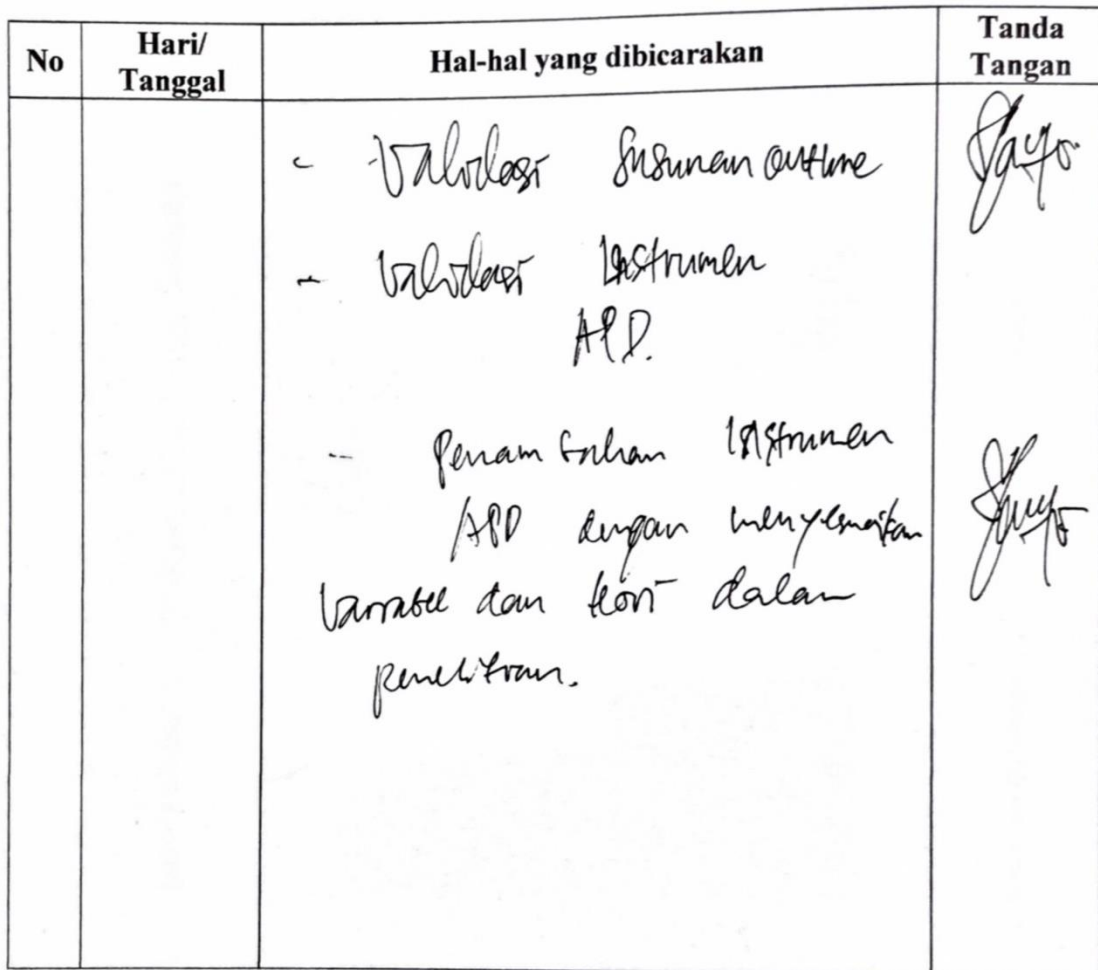 No Hari/ Tanggal Hal-hal yang dibicarakan Tanda Tangan
- Validasi Susunan outline
- Validasi Instrumen
APD.
- Penambahan Instrumen
APD dengan menyesuaikan
Variabel dan teori dalam
penelitian.